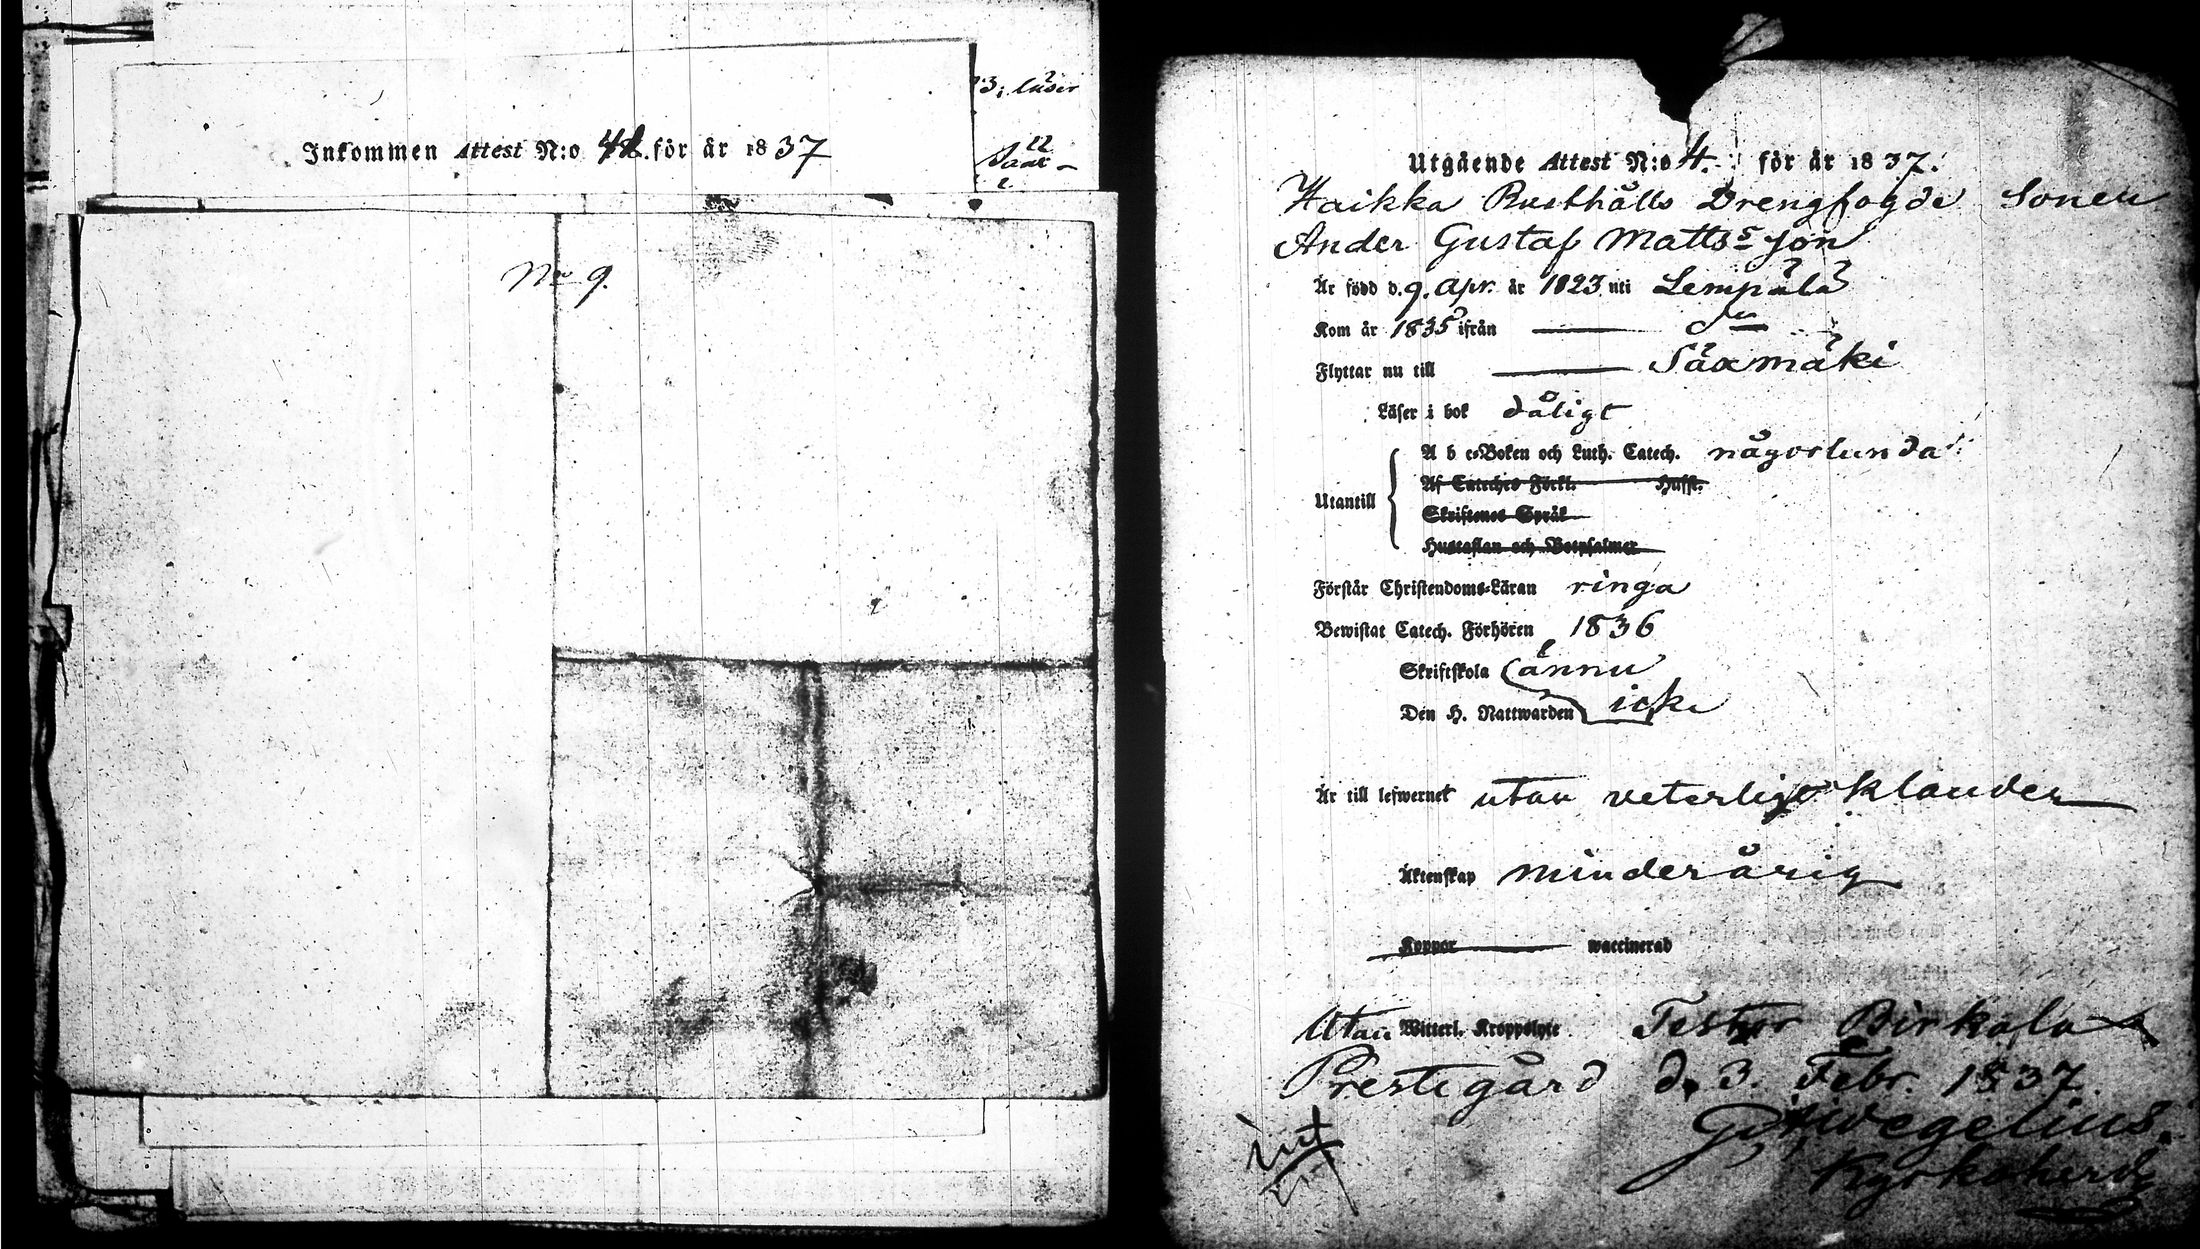 3; läser
Inkommen Attest N:o 42. för år 1837
No 9.
Utgående Attest N:o 4. för år 1837.
Haikka Rusthålls Drengfogde Sonen
Ander Gustaf Matts s son
Är född d. 9. Apr. år 1823 uti Lempälä
Kom år 1835 ifrån
Flyttar nu till Säxmäki
Läser i bok dåligt
Utantill
A b c-Boken och Luth. Catech. någorlunda
Af Cateches Förkl. Hufst.
Skriftenes Språk
Hustaflan och Botpsalmer
Förstår Christendoms-Läran ringa
Bewistat Catech. Förhören 1836
Skriftskola ännu
Den H. Nattwarden icke
Är till lefwernet utan veterligt klander
Äktenskap minderårig
Koppor waccinerad
Utan Witterl. Kroppslyte Testor Birkala
Prestegård d. 3. Febr. 1837
Wegelius.
Kyrkoherde
int